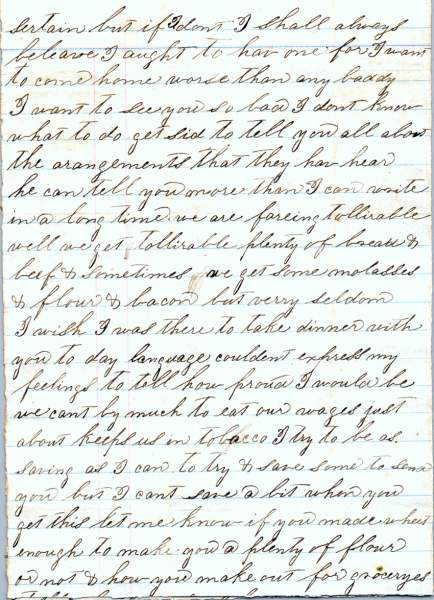 sertain but if I dont I shall always
beleave I aught to hav one for I want
to come home worse than any baddy
I want to see you so bad I dont know
what to do get sid to tell you all about
the arangements that they hav hear
he can tell you more than I can write
in a long time. we are fareing tollirable
well we get tollirable plenty of bread &
beef & sometimes we get some molasses
& flour & bacon but verry seldom
I wish I was there to take dinner with
you to day language couldent express my
feelings to tell how proud I would be
we cant by much to eat our wages just
about keeps us in tobacco I try to be as
saving as I can to try & save some to send
you but I cant save a bit when you
get this let me know if you made wheet
enough to make you a plenty of flour
or not & how you make out for groceryes